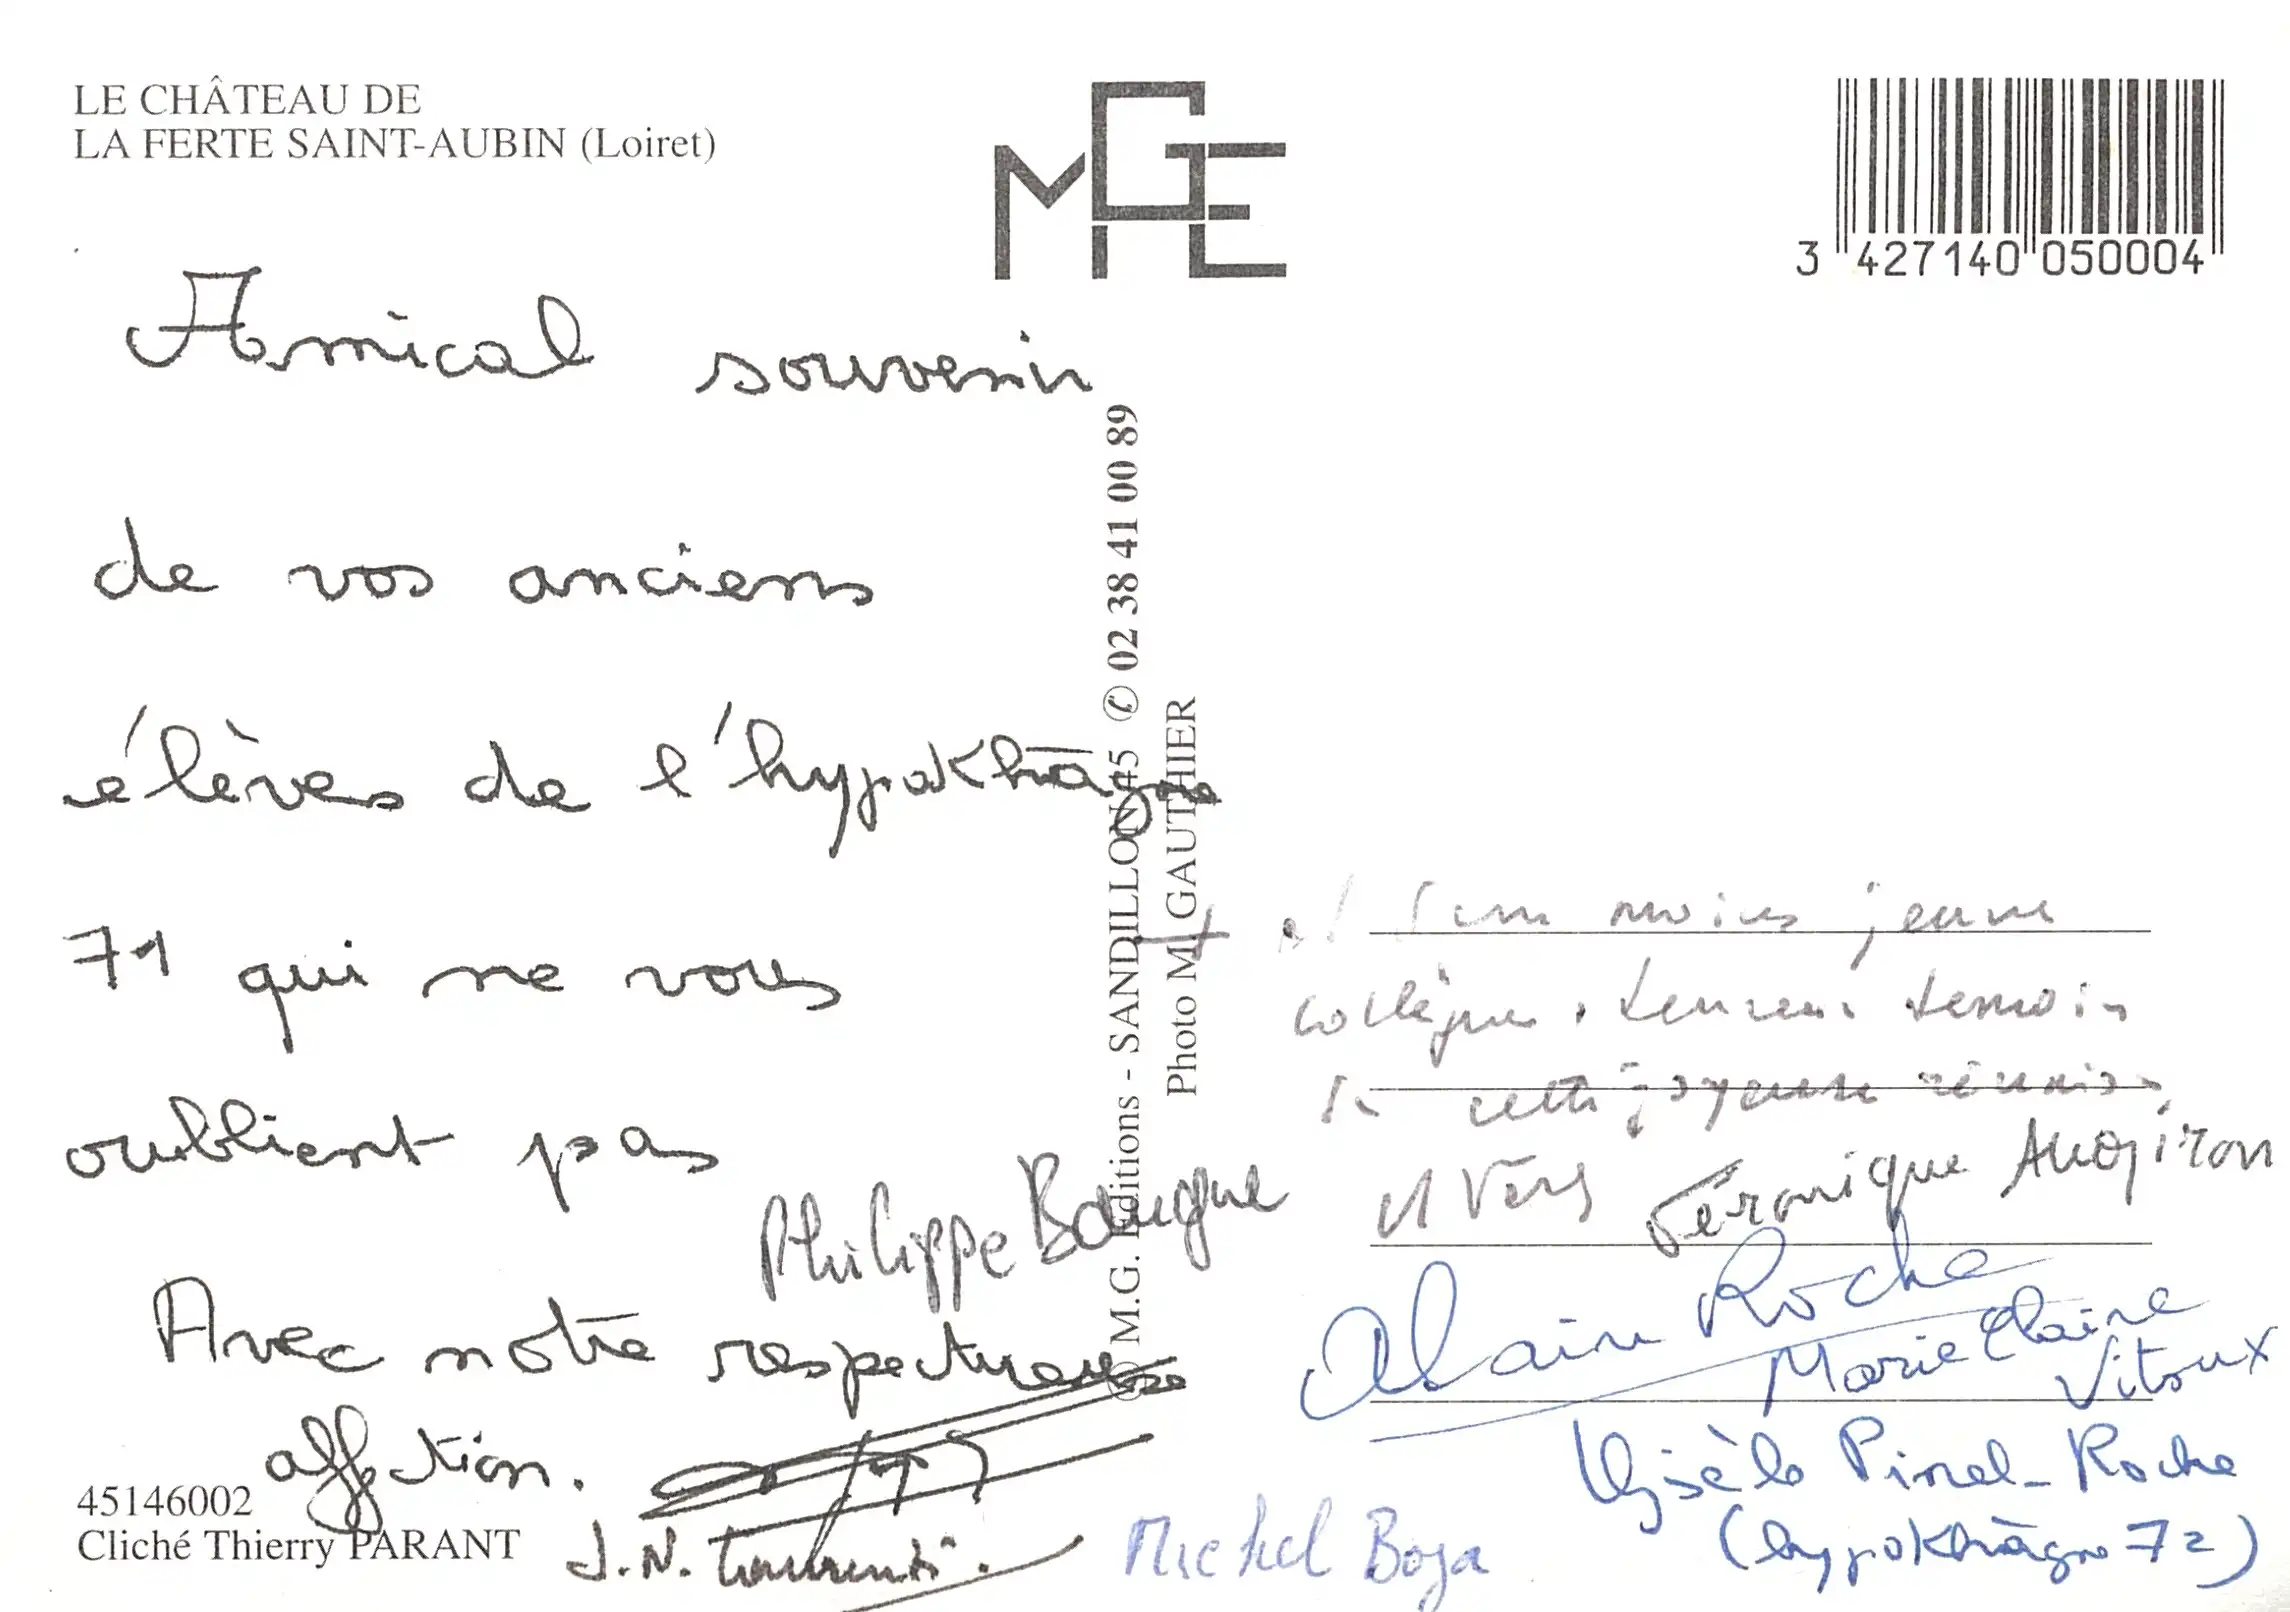 LE CHÂTEAU DE
LA FERTE SAINT-AUBIN (Loiret)
MGE
3 427140 050004
Amical souvenir
de vos anciens
élèves de l'hypokhâgne
71 qui ne vous
oublient pas
Avec notre respectueuse
affection.
Philippe Baugue
J.N.
Michel Boja
© M.G. Editions - SANDILLON 45 ✆ 02 38 41 00 89
Photo M. GAUTHIER
+ et d'un moins jeune
collègue, heureux témoin
de cette joyeuse réunion,
Véronique
Alain Roche
Marie Claire
Vitoux
Gisèle Pinel-Roche
(hypokhâgne 72)
45146002
Cliché Thierry PARANT